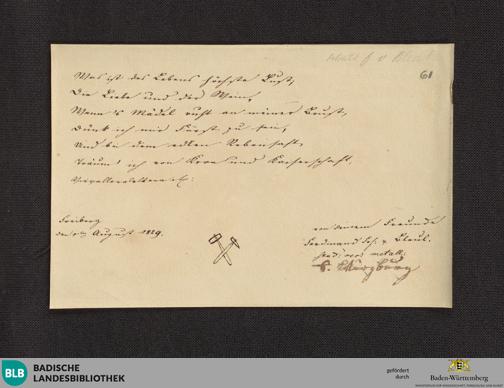 61
Was ist des Lebens höchste Lust,
Die Liebe und der Wein,
Wenn's Mädel ruht an meiner Brust,
Dünk ich mir Fürst zu sein,
Und bei dem edlen Rebensaft,
Träum' ich von Kron und Kaiserschaft.
Freiberg
den August 1829.
von deinem Freunde
Ferdinand
metall:
Würzburg
BLB BADISCHE
LANDESBIBLIOTHEK
gefördert
durch
Baden-Württemberg